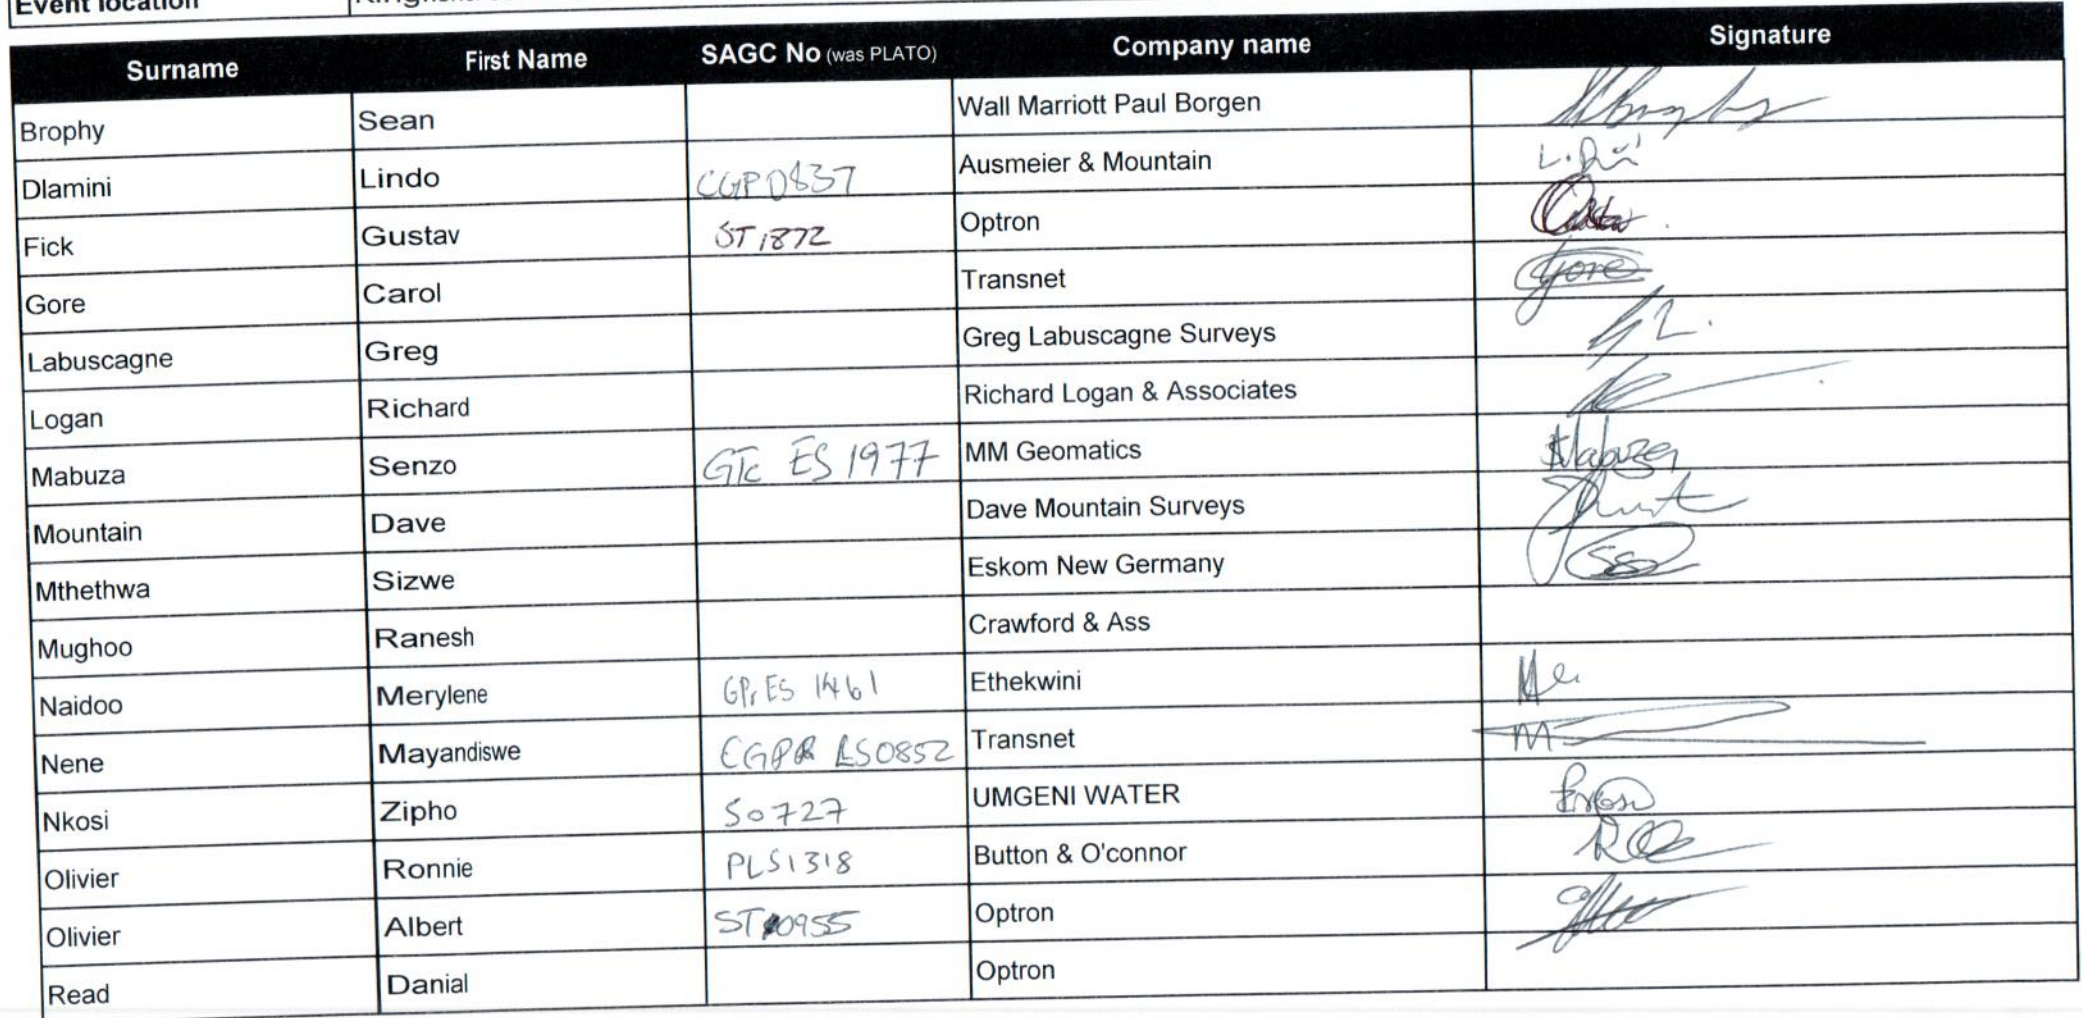 Event location
Surname First Name SAGC No (was PLATO) Company name Signature
Brophy Sean Wall Marriott Paul Borgen
Dlamini Lindo CGPD837 Ausmeier & Mountain
Fick Gustav ST1872 Optron
Gore Carol Transnet Gore
Labuscagne Greg Greg Labuscagne Surveys
Logan Richard Richard Logan & Associates
Mabuza Senzo GTc ES 1977 MM Geomatics Mabuza
Mountain Dave Dave Mountain Surveys
Mthethwa Sizwe Eskom New Germany
Mughoo Ranesh Crawford & Ass
Naidoo Merylene GPrES 1461 Ethekwini
Nene Mayandiswe LS0852 Transnet
Nkosi Zipho S0727 UMGENI WATER
Olivier Ronnie PLS1318 Button & O'connor
Olivier Albert ST0955 Optron
Read Danial Optron